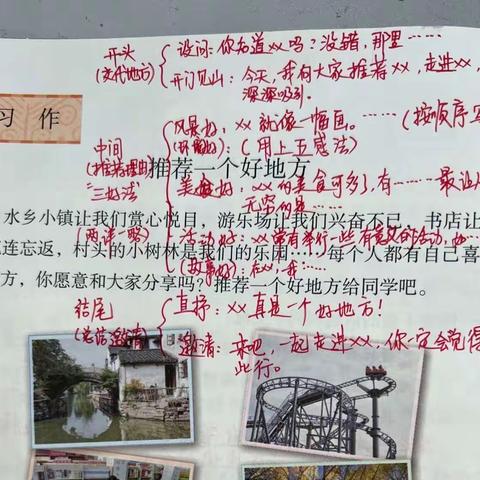 开头
(交代地方)
设问：你知道xx吗？没错，那里……
开门见山：今天，我向大家推荐xx，走进xx，
深深吸引。
习 作
风景好：xx就像一幅画。……(按顺序写
(环境好)：(用上五感法)
中间
(推荐理由)
"三好法"
推荐一个好地方
美食好：xx的美食可多了，有……最让人
无穷的是……
水乡小镇让我们赏心悦目，游乐场让我们兴奋不已，书店让
(两详一略)
活动好：xx常有举行一些有意义的活动，如…
连忘返，村头的小树林是我们的乐园……每个人都有自己喜
(故事好)：在xx，我…
方，你愿意和大家分享吗？推荐一个好地方给同学吧。
结尾
(总结邀请)
直抒：xx真是一个好地方！
邀请：来吧，一起走进xx，你一定会觉得
此行。